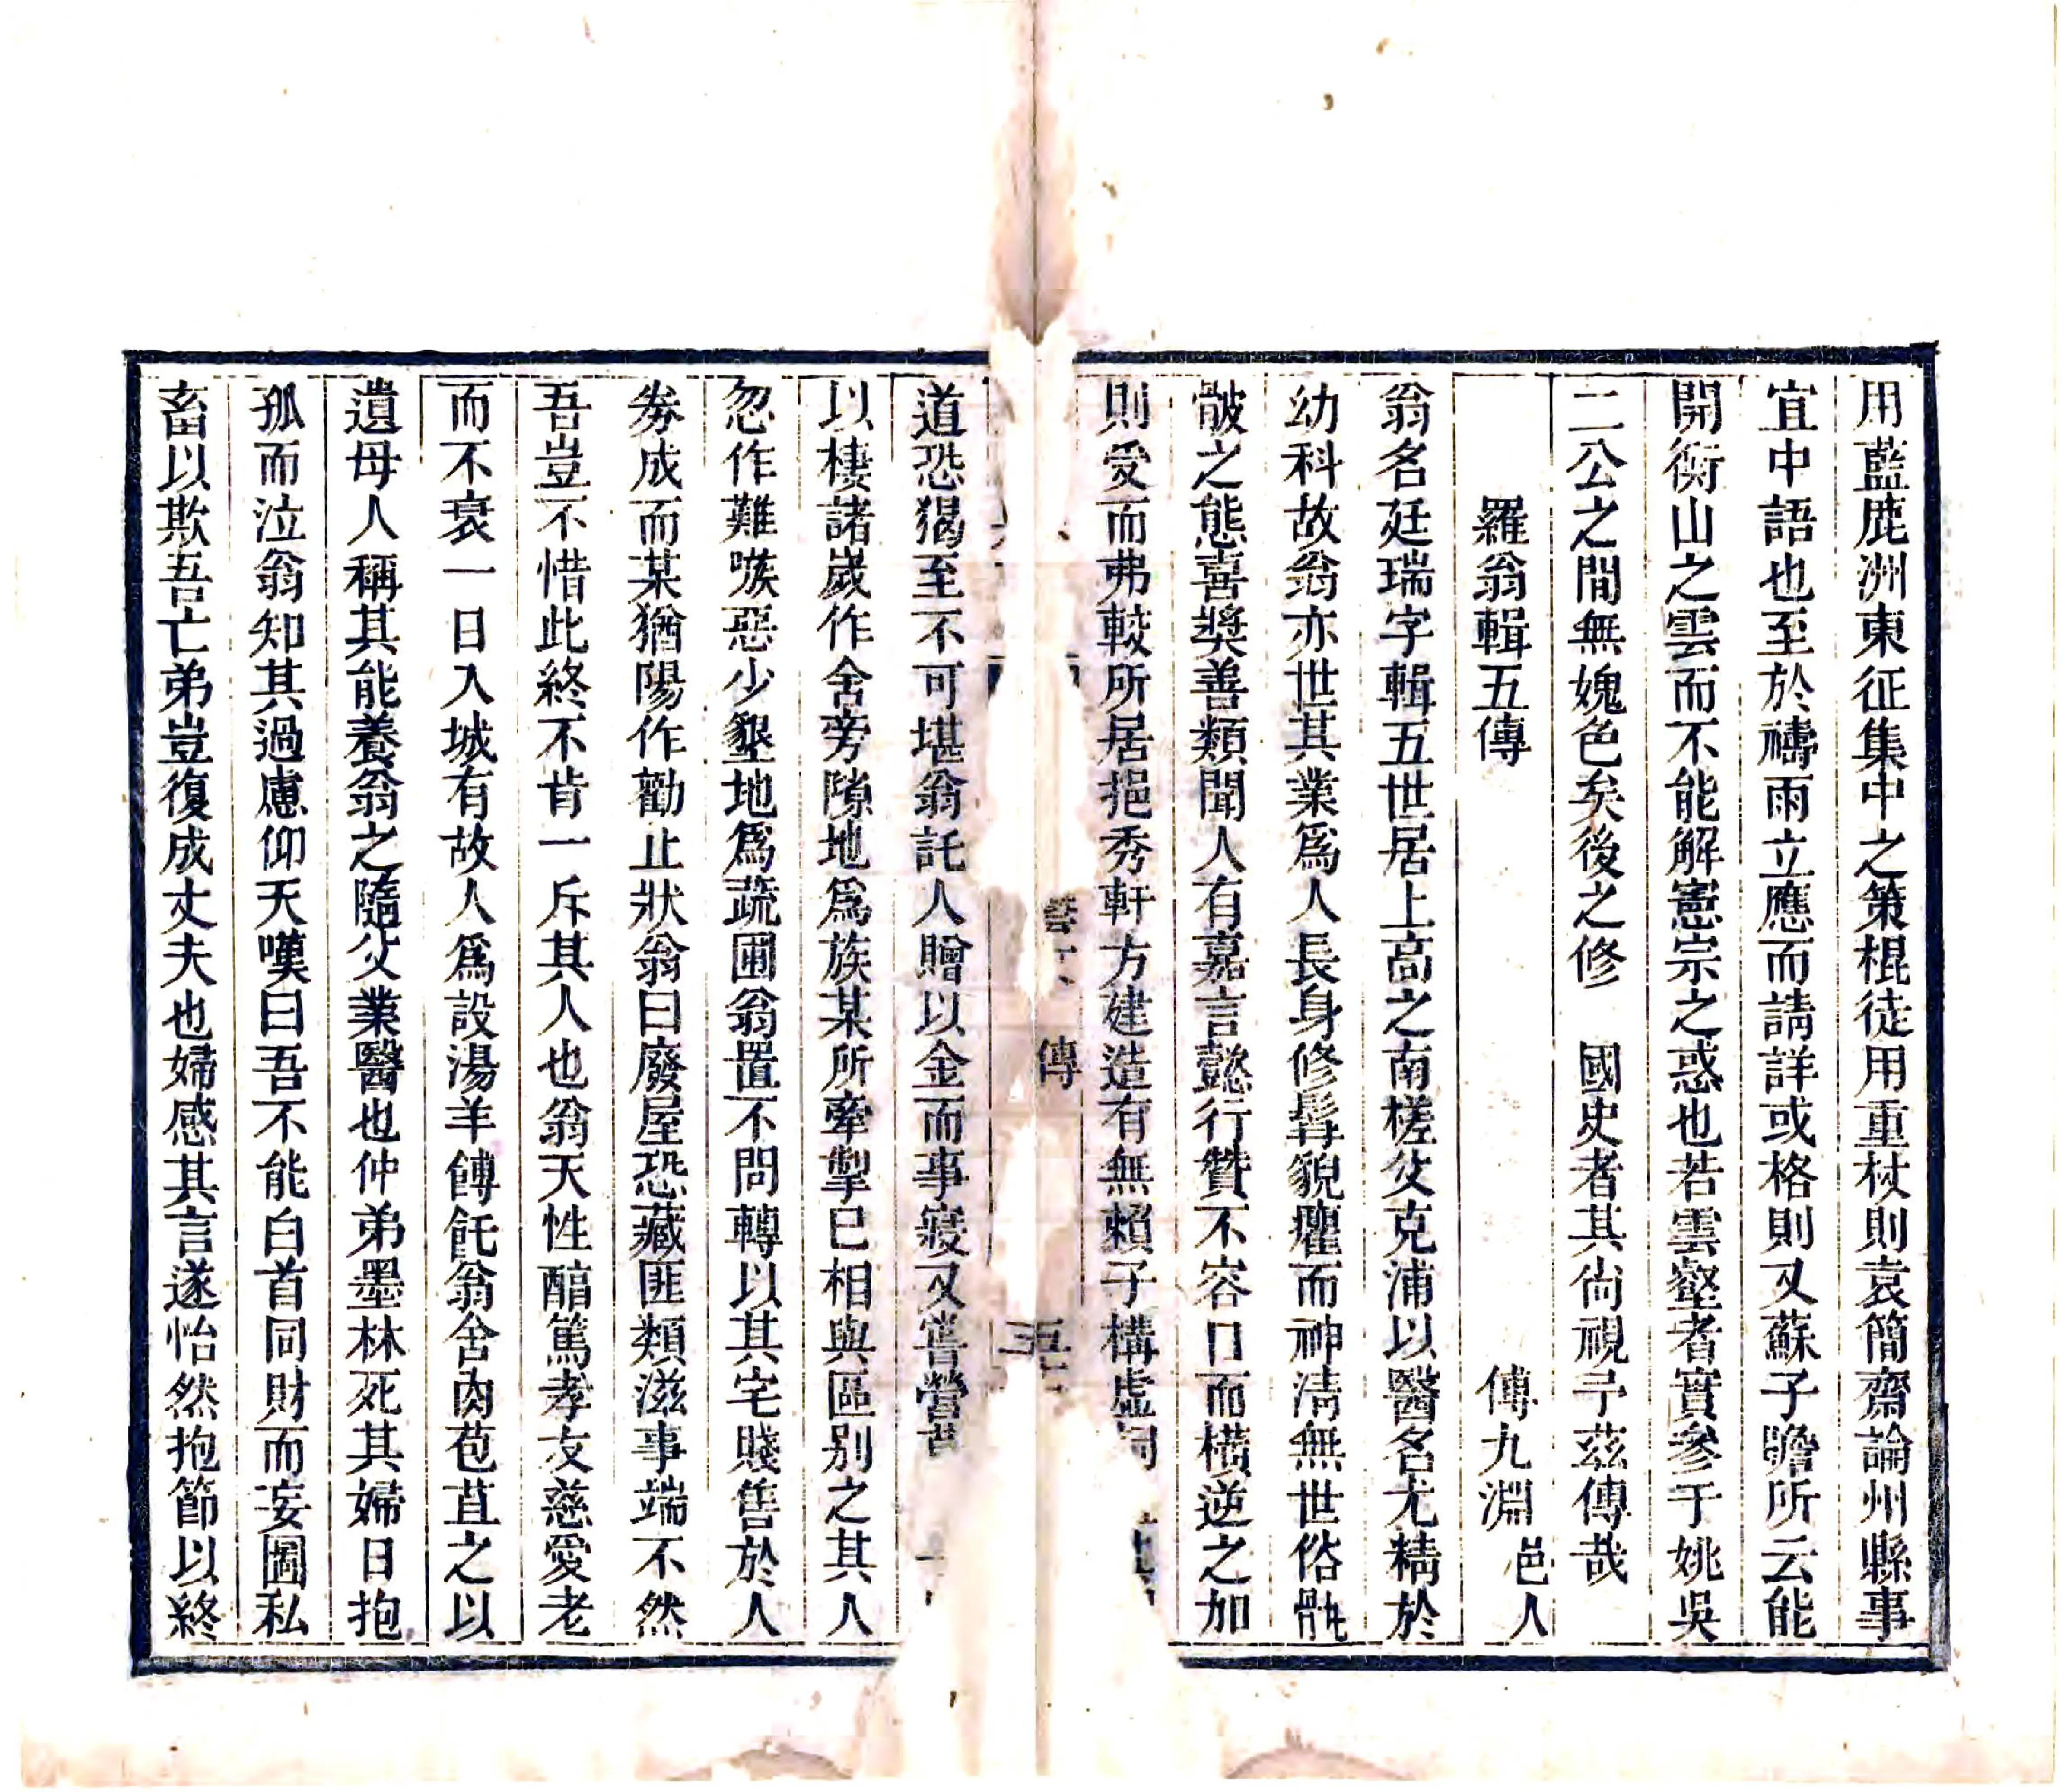 用藍鹿洲東征集中之策棍徒用重杖則袁簡齋論州縣事
宜中語也至於禱雨立應而請詳或格則又蘇子瞻所云能
開衡山之雲而不能解憲宗之惑也若雲壑者實參于姚吳
二公之間無媿色矣後之修　國史者其尙視予茲傳哉
羅翁輯五傳　傅九淵邑人
翁名廷瑞字輯五世居上高之南槎父克浦以醫名尤精於
幼科故翁亦世其業爲人長身修髯貌癯而神淸無世俗骩
骳之態喜奬善類聞人有嘉言懿行贊不容口而橫逆之加
則受而弗較所居挹秀軒方建造有無賴子構虛詞
傳
五
道恐猲至不可堪翁託人贈以金而事寢又嘗營
以棲諸嵗作舍旁隙地爲族某所牽掣已相與區别之其人
忽作難嗾惡少墾地爲蔬圃翁置不問轉以其宅賤售於人
券成而某猶陽作勸止狀翁曰廢屋恐藏匪類滋事端不然
吾豈不惜此終不肯一斥其人也翁天性醕篤孝友慈愛老
而不衰一日入城有故人爲設湯羊餺飥翁舍肉苞苴之以
遺母人稱其能養翁之隨父業醫也仲弟墨林死其婦日抱
孤而泣翁知其過慮仰天嘆曰吾不能白首同財而妄圖私
畜以欺吾亡弟豈復成丈夫也婦感其言遂怡然抱節以終